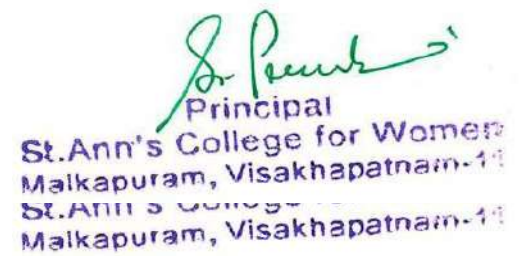 Sr.
Principal
St.Ann's College for Women
Malkapuram, Visakhapatnam-11
St.Ann's College
Malkapuram, Visakhapatnam-11